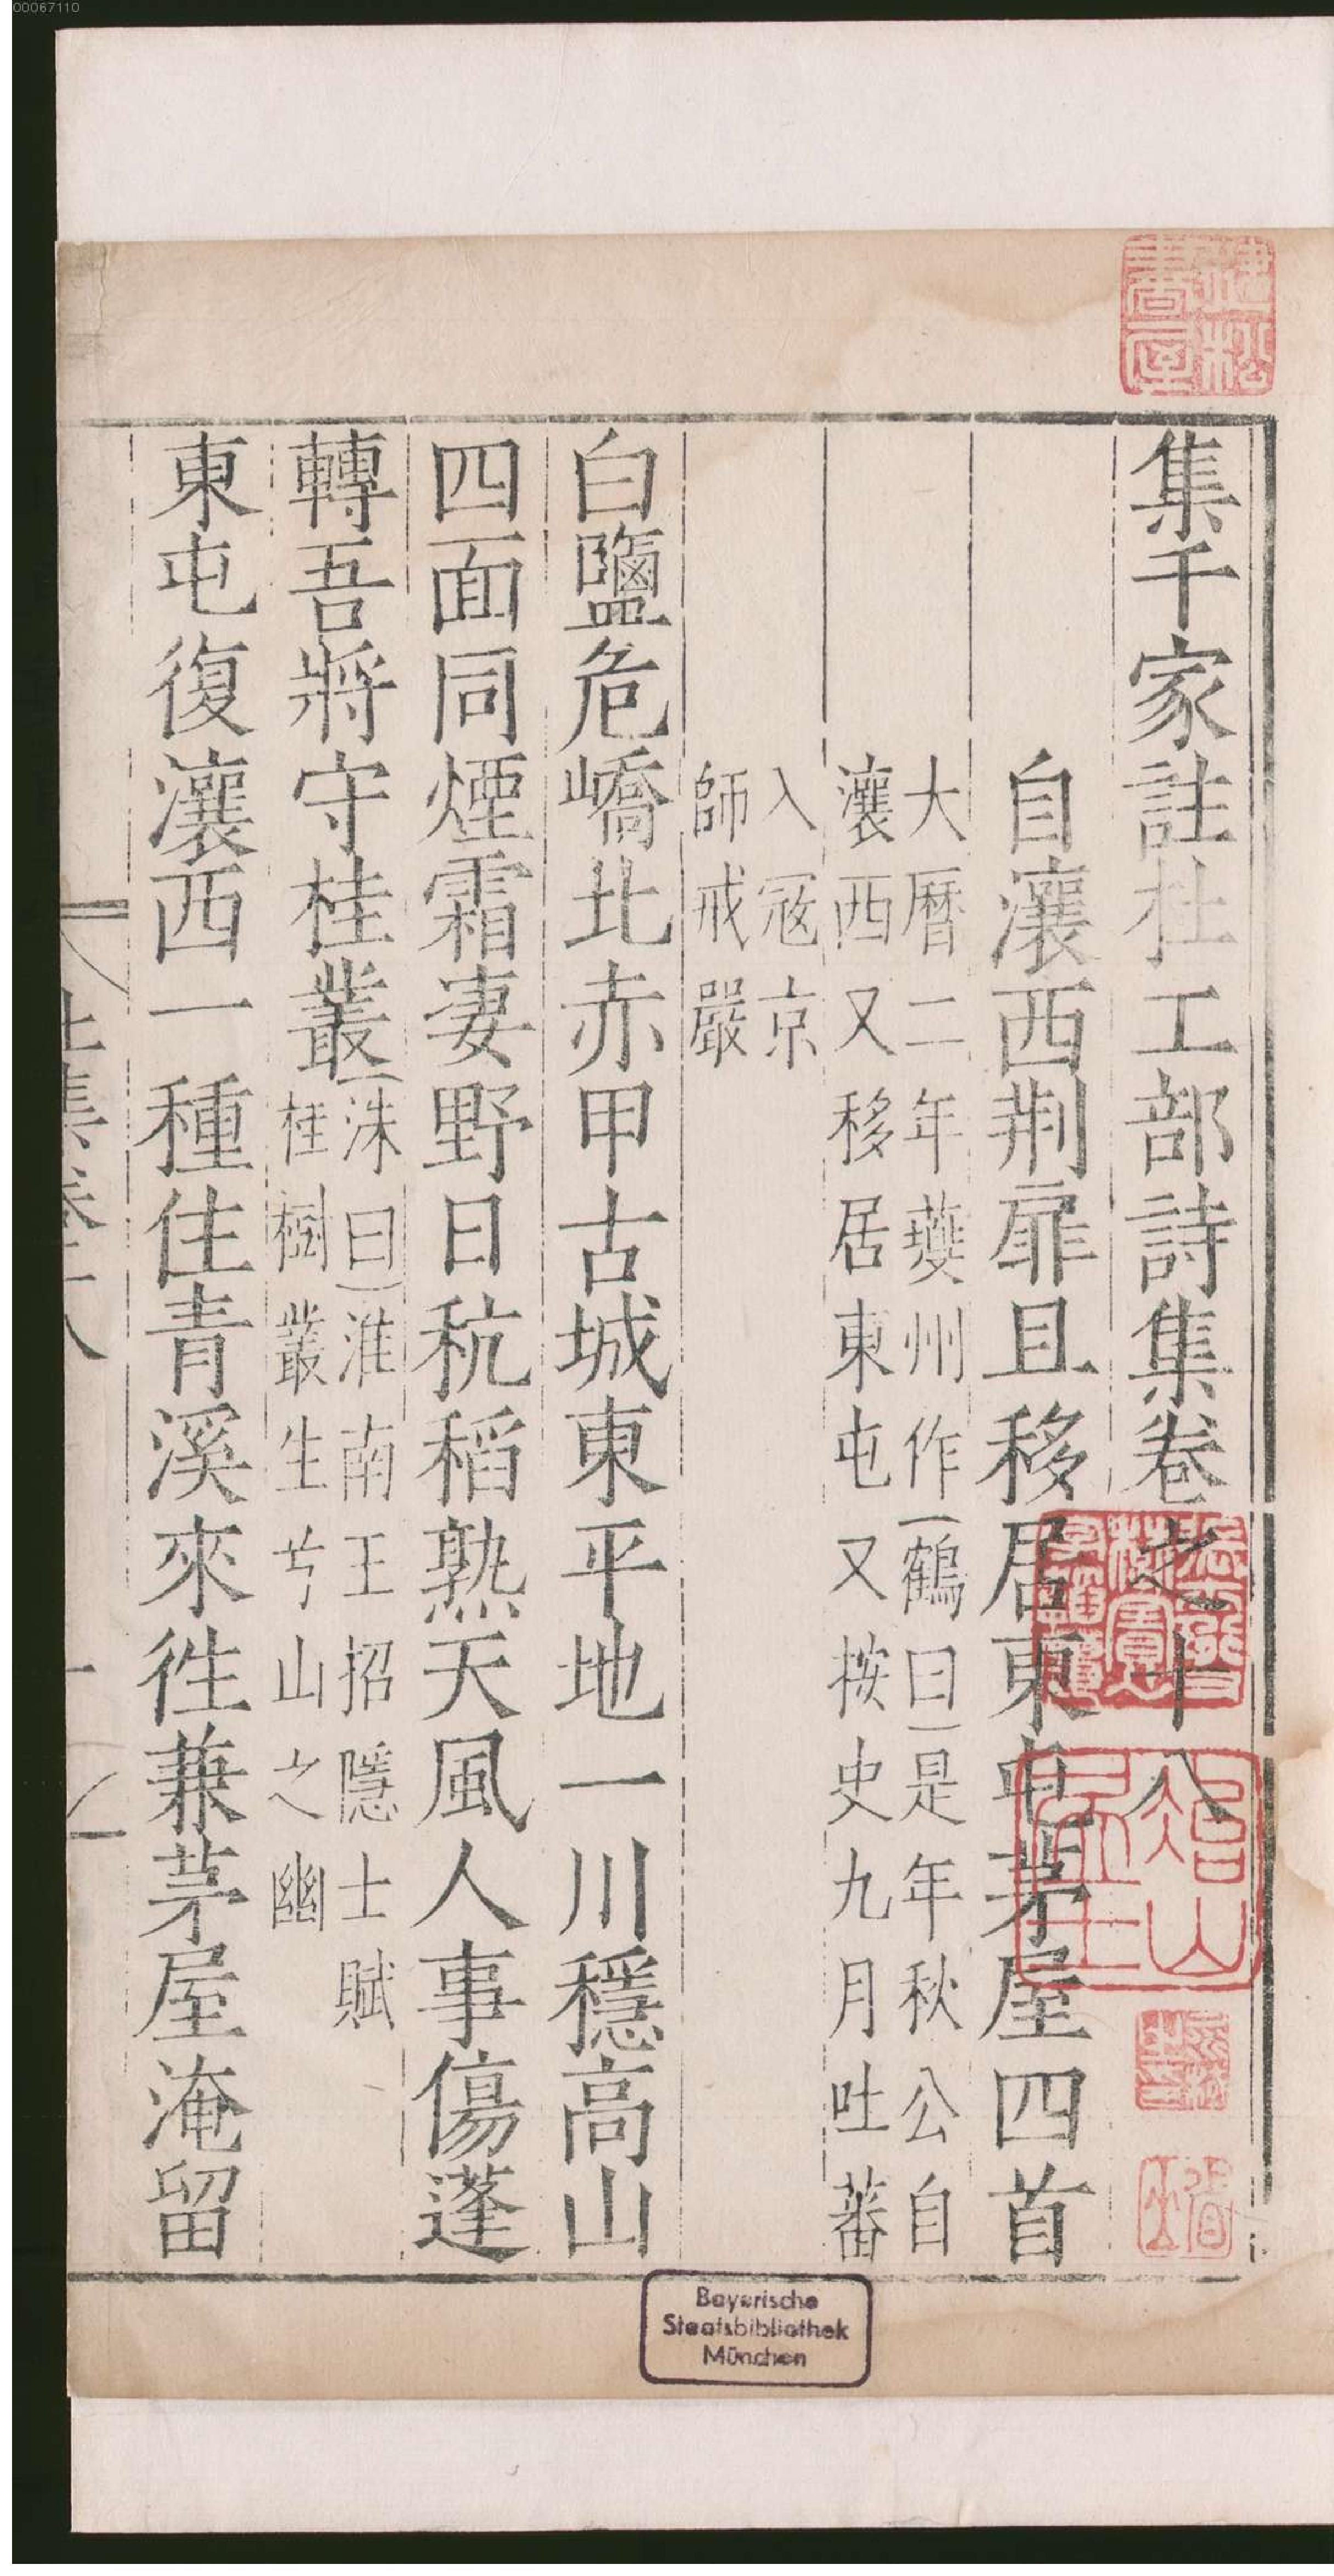 00067110
集千家註杜工部詩集卷之十八
自瀼西荆扉且移居東屯茅屋四首
大曆二年夔州作鶴曰是年秋公自
瀼西又移居東屯又按史九月吐蕃
入寇京
師戒嚴
白鹽危嶠北赤甲古城東平地一川穩高山
四面同煙霜妻野日秔稻熟天風人事傷蓬
轉吾將守桂叢
洙曰淮南王招隱士賦
桂樹叢生兮山之幽
東屯復瀼西一種住青溪來徃兼茅屋淹留
Bayerische
Staatsbibliothek
München